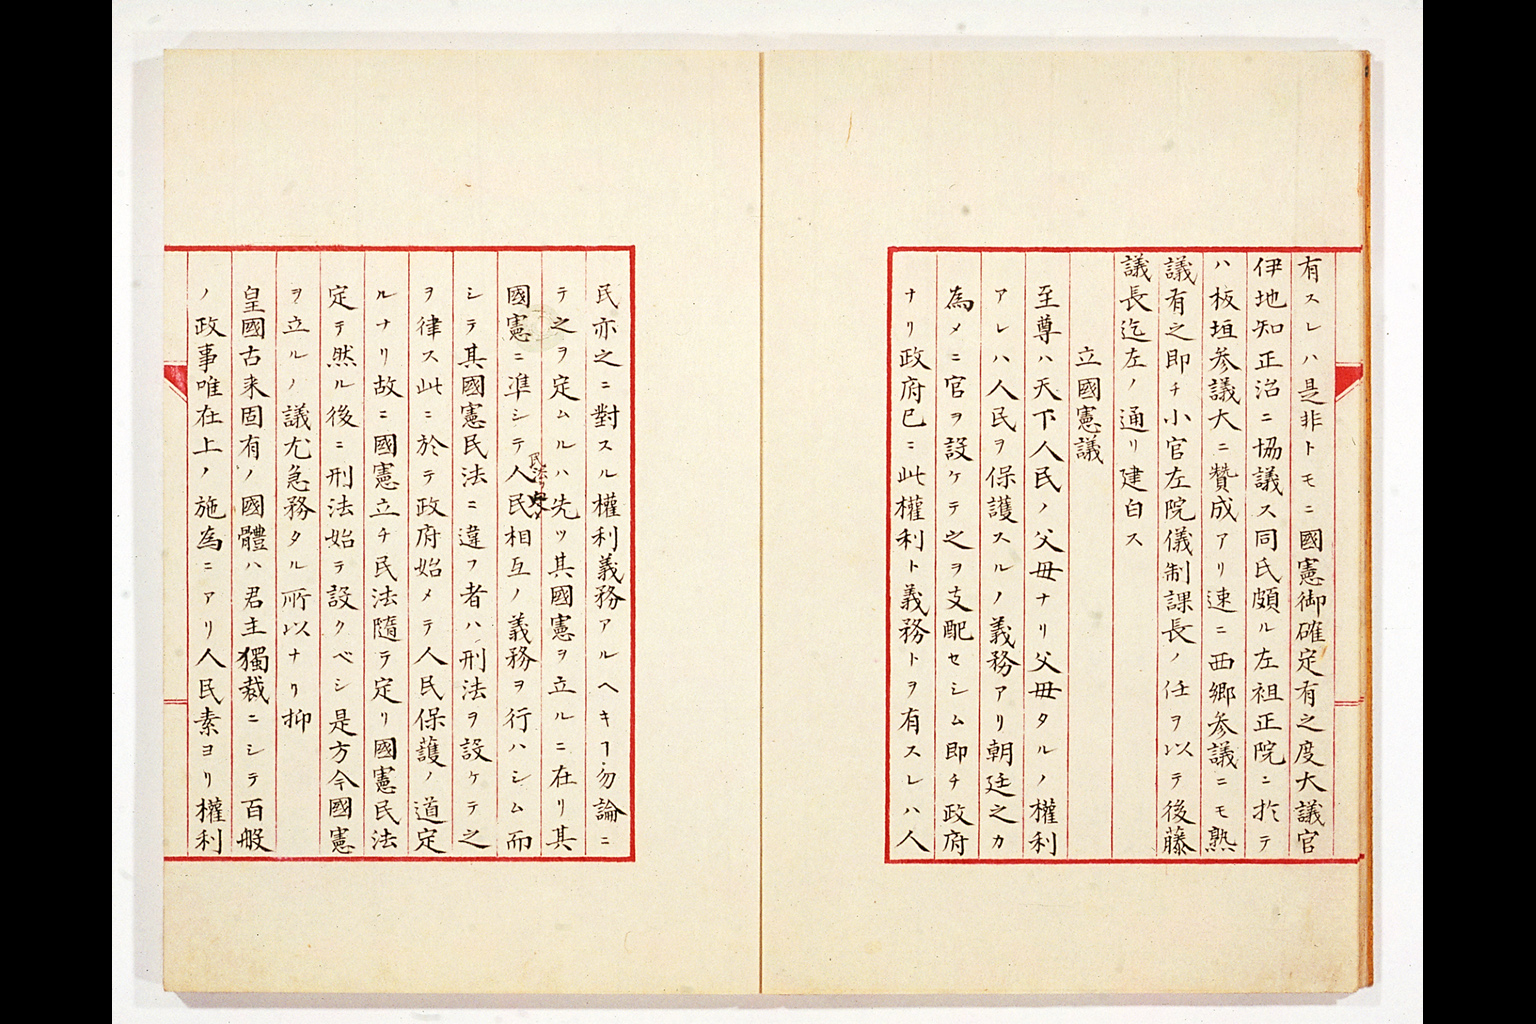 有スレハ是非トモニ國憲御確定有之度大議官
伊地知正治ニ協議ス同氏頗ル左祖正院ニ於テ
ハ板垣参議大ニ贊成アリ速ニ西郷参議ニモ熟
議有之即チ小官左院儀制課長ノ任ヲ以テ後藤
議長迄左ノ通リ建白ス
立國憲議
至尊ハ天下人民ノ父母ナリ父母タルノ權利
アレハ人民ヲ保護スルノ義務アリ朝廷之カ
為メニ官ヲ設ケテ之ヲ支配セシム即チ政府
ナリ政府已ニ此權利ト義務トヲ有スレハ人
民亦之ニ對スル權利義務アルヘキヿ勿論ニ
テ之ヲ定ムルハ先ツ其國憲ヲ立ルニ在リ其
國憲ニ準シテ人民相互ノ義務ヲ行ハシム而
民法ヲ定メ
シテ其國憲民法ニ違フ者ハ刑法ヲ設ケテ之
ヲ律ス此ニ於テ政府始メテ人民保護ノ道定
ルナリ故ニ國憲立チ民法隨テ定リ國憲民法
定テ然ル後ニ刑法始テ設クベシ是方今國憲
ヲ立ルノ議尤急務タル所以ナリ抑
皇國古来固有ノ國體ハ君主獨裁ニシテ百般
ノ政事唯在上ノ施為ニアリ人民素ヨリ權利